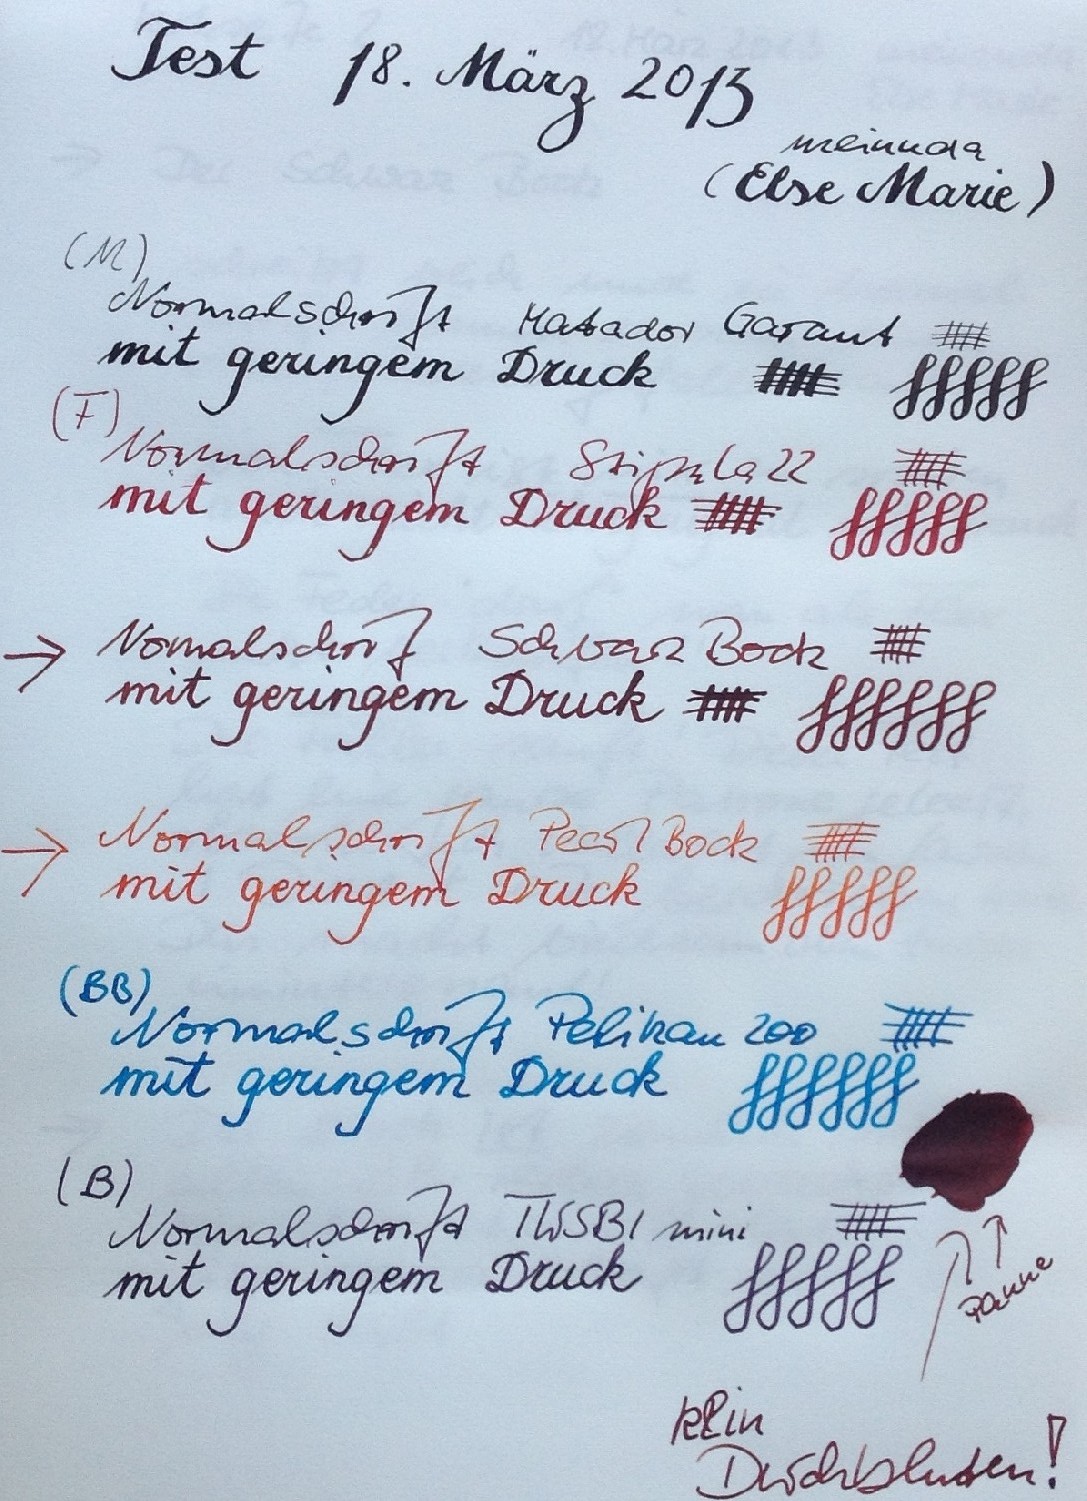 Test 18. März 2013
meinuda
(Else Marie)
(M)
Normalschrift Matador Garant
mit geringem Druck
(F)
Normalschrift Stipula 22
mit geringem Druck
→ Nomalschrif Schwarz Bock
mit geringem Druck
→ Normalschrift Pearl Bock
mit geringem Druck
(BB)
Normalschrift Pelikan 200
mit geringem Druck
(B)
Normalschrift TWSBI mini
mit geringem Druck
Panne
kein
Durchbluten!